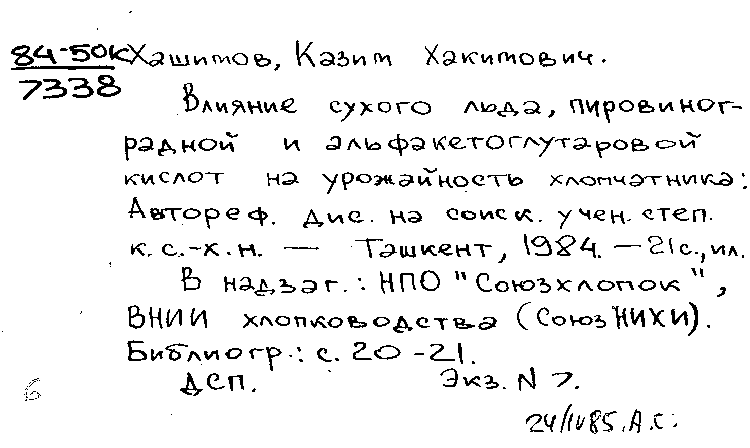 84-50к Хашимов, Казим Хакимович.
7338
Влияние сухого льда, пировиног-
радной и альфакетоглутаровой
кислот на урожайность хлопчатника:
Автореф. дис. на соиск. учен. степ.
к. с.-х. н. — Ташкент, 1984. — 21 с., ил.
В надзаг.: НПО "Союзхлопок",
ВНИИ хлопководства (СоюзНИХИ).
Библиогр.: с. 20-21.
ДСП. Экз. N 7.
б
24/IV85. А.С.